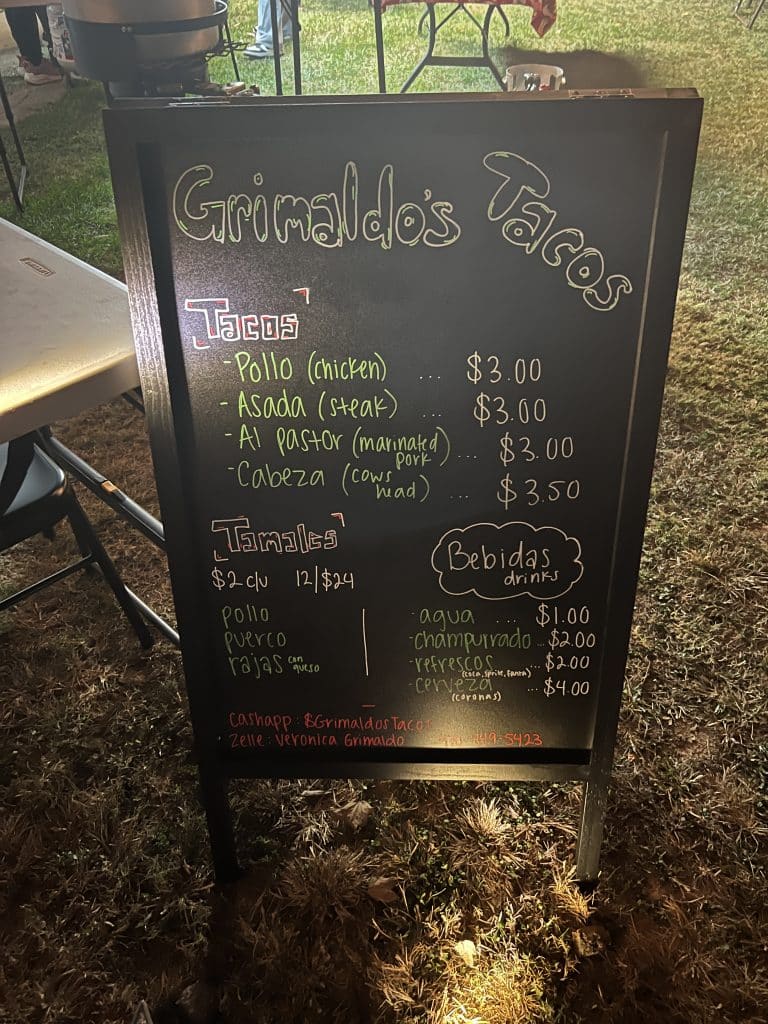 Grimaldo's Tacos
Tacos
-Pollo (chicken) ... $3.00
-Asada (steak) ... $3.00
-Al pastor (marinated pork) ... $3.00
-Cabeza (cows head) ... $3.50
Tamales
$2 c/u 12/$24
pollo
puerco
rajas con queso
Bebidas
drinks
-agua .... $1.00
-champurrado ... $2.00
-refrescos ... $2.00
(coca, sprite, fanta)
-cerveza ... $4.00
(coronas)
Cashapp: $GrimaldosTacos
Zelle: Veronica Grimaldo 749-5423